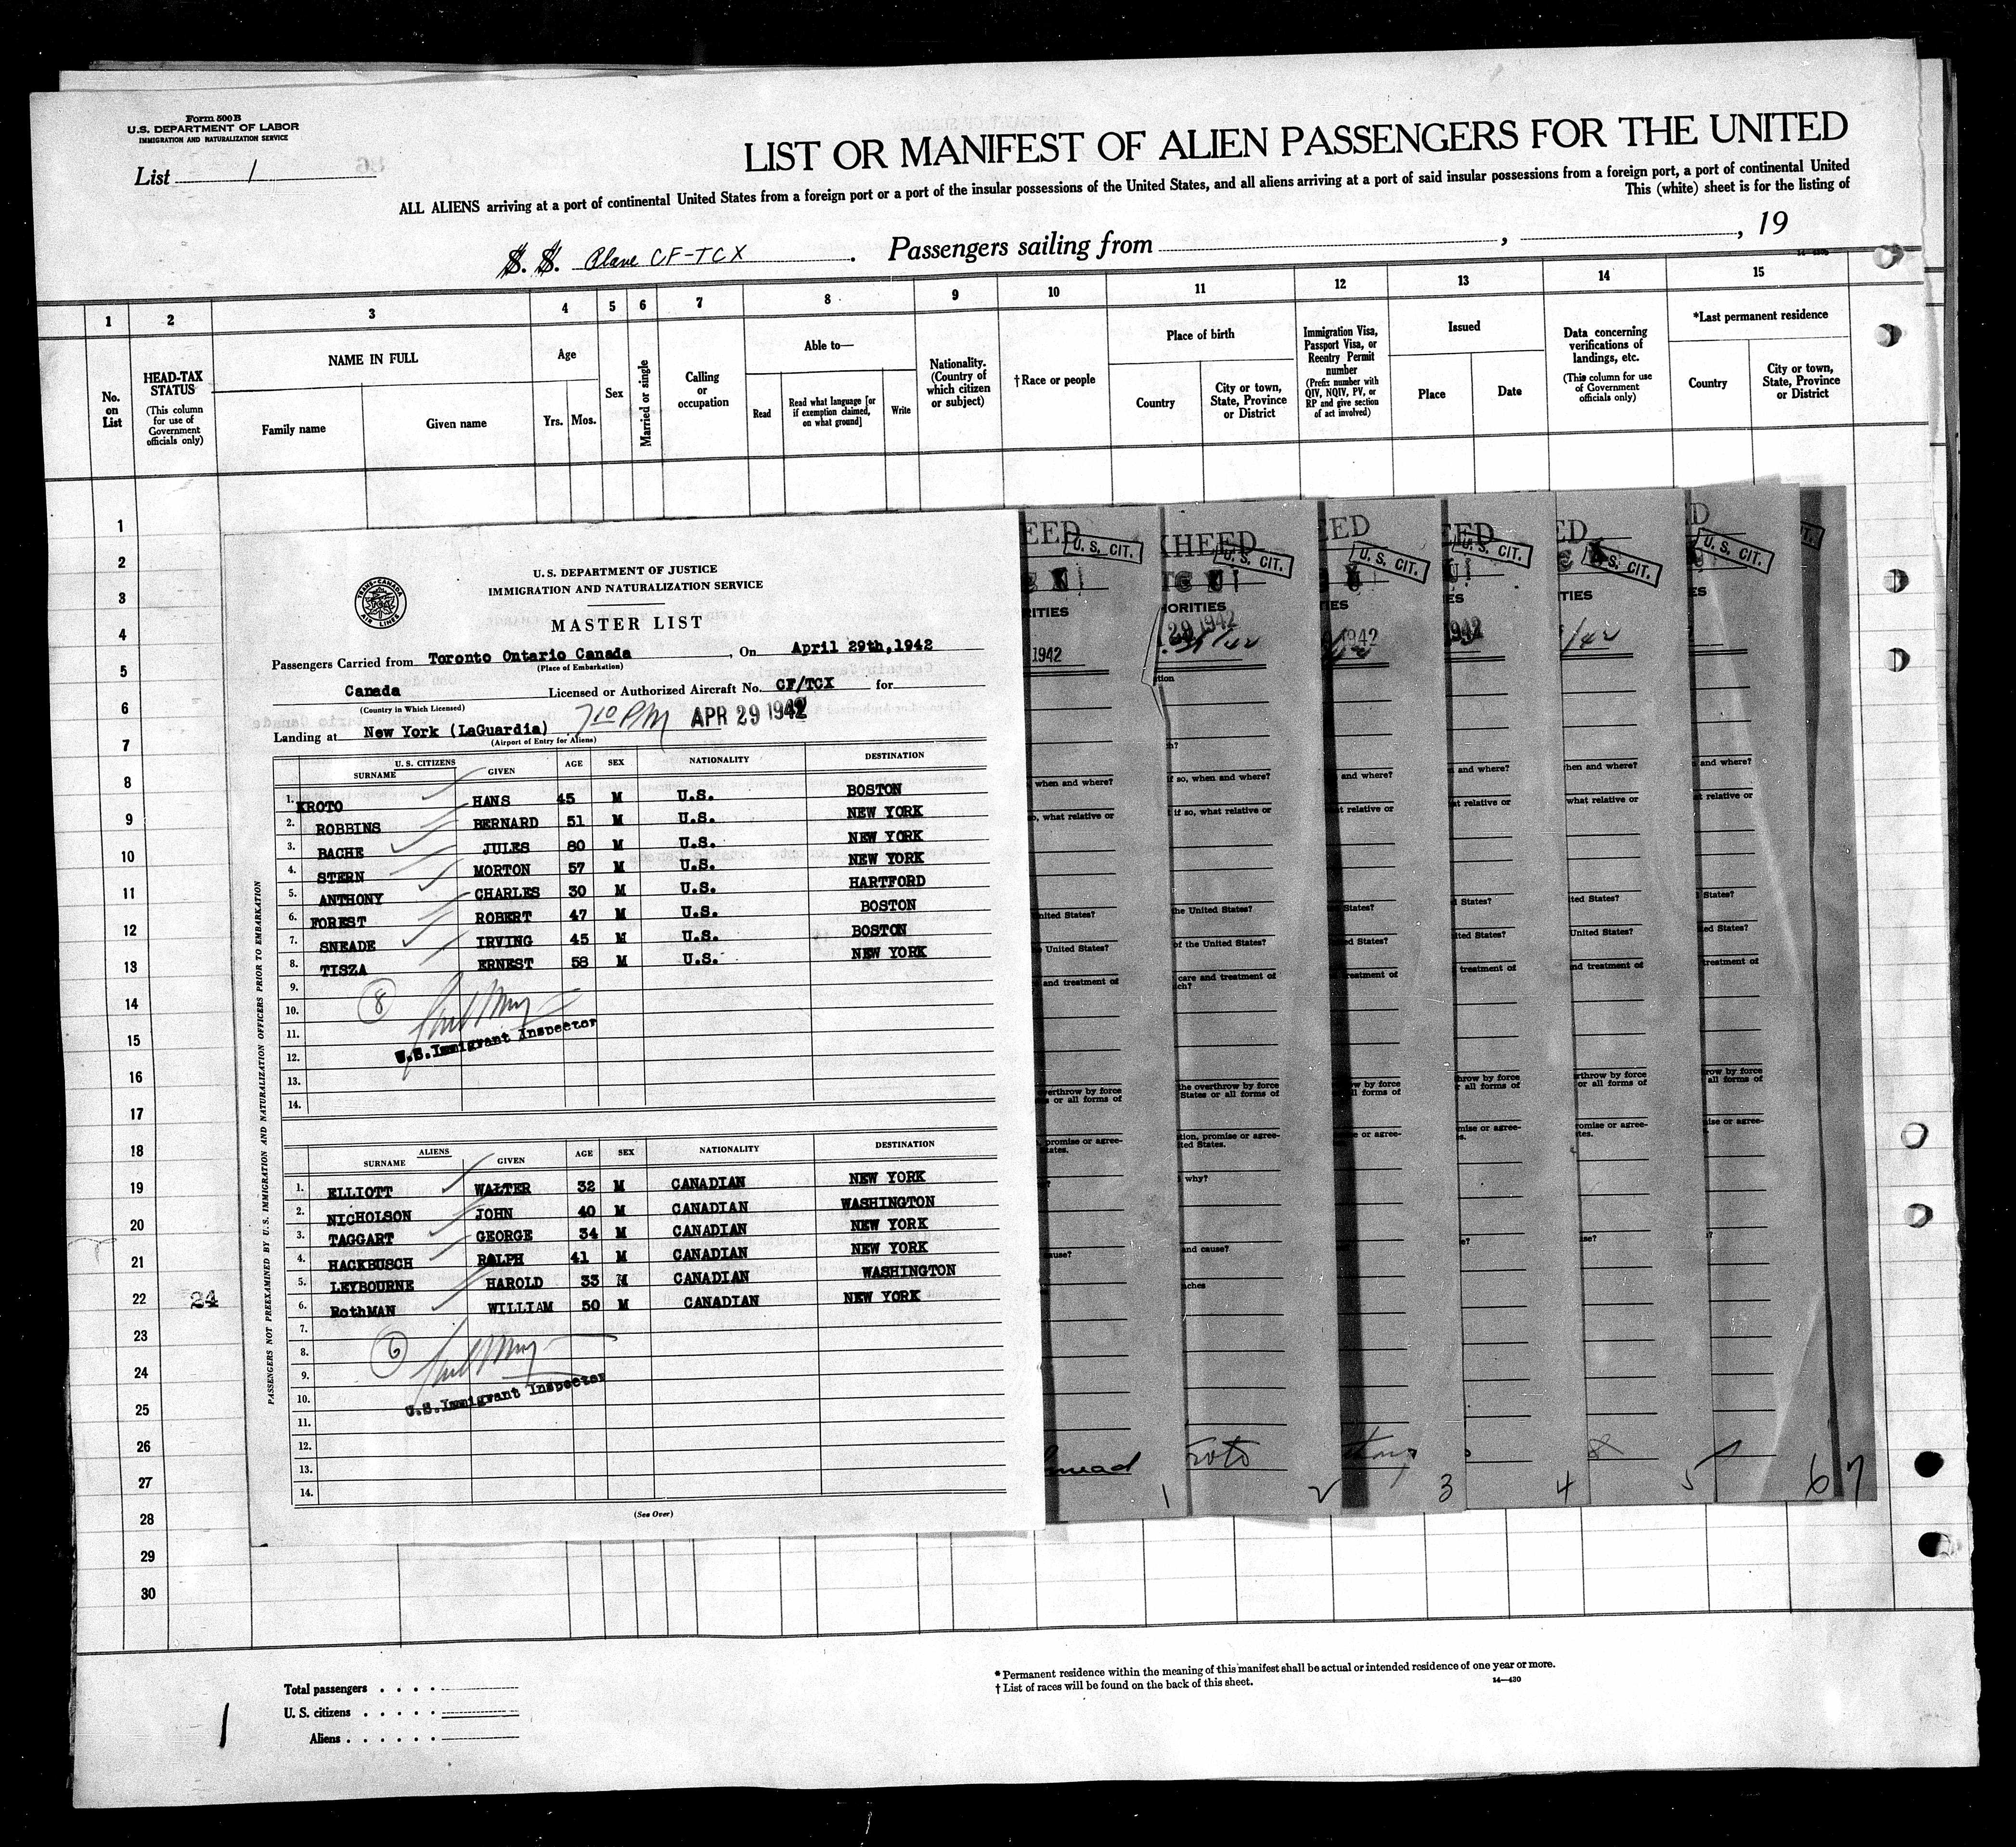 Form 500B
U.S. DEPARTMENT OF LABOR
IMMIGRATION AND NATURALIZATION SERVICE
List 1
LIST OR MANIFEST OF ALIEN PASSENGERS FOR THE UNITED
ALL ALIENS arriving at a port of continental United States from a foreign port or a port of the insular possessions of the United States, and all aliens arriving at a port of said insular possessions from a foreign port, a port of continental United
This (white) sheet is for the listing of
S. S. Plane CF-TCX. Passengers sailing from , , 19
1 2 3 4 5 6 7 8 9 10 11 12 13 14 15
No. on List
HEAD-TAX STATUS
(This column for use of Government officials only)
NAME IN FULL
Family name Given name
Age
Yrs. Mos.
Sex
Married or single
Calling or occupation
Able to—
Read
Read what language [or if exemption claimed, on what ground]
Write
Nationality. (Country of which citizen or subject)
†Race or people
Place of birth
Country
City or town, State, Province or District
Immigration Visa, Passport Visa, or Reentry Permit number
(Prefix number with QIV, NQIV, PV, or RP and give section of act involved)
Issued
Place Date
Data concerning verifications of landings, etc.
(This column for use of Government officials only)
*Last permanent residence
Country
City or town, State, Province or District
1
2
3
4
5
6
7
8
9
10
11
12
13
14
15
16
17
18
19
20
21
22 24
23
24
25
26
27
28
29
30
TRANS-CANADA AIR LINES
U. S. DEPARTMENT OF JUSTICE
IMMIGRATION AND NATURALIZATION SERVICE
MASTER LIST
Passengers Carried from Toronto Ontario Canada, On April 29th, 1942
(Place of Embarkation)
Canada Licensed or Authorized Aircraft No. CF/TCX for
(Country in Which Licensed)
Landing at New York (LaGuardia) 7 10 PM APR 29 1942
(Airport of Entry for Aliens)
U. S. CITIZENS
SURNAME GIVEN AGE SEX NATIONALITY DESTINATION
1. KROTO HANS 45 M U.S. BOSTON
2. ROBBINS BERNARD 51 M U.S. NEW YORK
3. BACHE JULES 80 M U.S. NEW YORK
4. STERN MORTON 57 M U.S. NEW YORK
5. ANTHONY CHARLES 30 M U.S. HARTFORD
6. FOREST ROBERT 47 M U.S. BOSTON
7. SNEADE IRVING 45 M U.S. BOSTON
8. TISZA ERNEST 58 M U.S. NEW YORK
9.
10.
11.
12.
13.
14.
8
U.S.Immigrant Inspector
ALIENS
SURNAME GIVEN AGE SEX NATIONALITY DESTINATION
1. ELLIOTT WALTER 32 M CANADIAN NEW YORK
2. NICHOLSON JOHN 40 M CANADIAN WASHINGTON
3. TAGGART GEORGE 34 M CANADIAN NEW YORK
4. HACKBUSCH RALPH 41 M CANADIAN NEW YORK
5. LEYBOURNE HAROLD 33 M CANADIAN WASHINGTON
6. RothMAN WILLIAM 50 M CANADIAN NEW YORK
7.
8.
9.
10.
11.
12.
13.
14.
6
U.S.Immigrant Inspector
(See Over)
PASSENGERS NOT PREEXAMINED BY U. S. IMMIGRATION AND NATURALIZATION OFFICERS PRIOR TO EMBARKATION
U. S. CIT. U. S. CIT. U. S. CIT. U. S. CIT. U. S. CIT. U. S. CIT.
1942 29 1942 1942 1942
when and where? if so, when and where? and where? and where? when and where? and where?
what relative or if so, what relative or relative or relative or what relative or relative or
United States? the United States? States? States? United States? States?
United States? of the United States? States? States? United States? States?
and treatment of care and treatment of treatment of treatment of and treatment of treatment of
overthrow by force the overthrow by force by force by force by force by force
or all forms of States or all forms of all forms of all forms of or all forms of all forms of
promise or agree- promise or agree- or agree- or agree- promise or agree- or agree-
why?
and cause?
1 2 3 4 5 6 7
Total passengers . . . .
U. S. citizens . . . . .
Aliens . . . . . .
1
* Permanent residence within the meaning of this manifest shall be actual or intended residence of one year or more.
† List of races will be found on the back of this sheet.
14—430